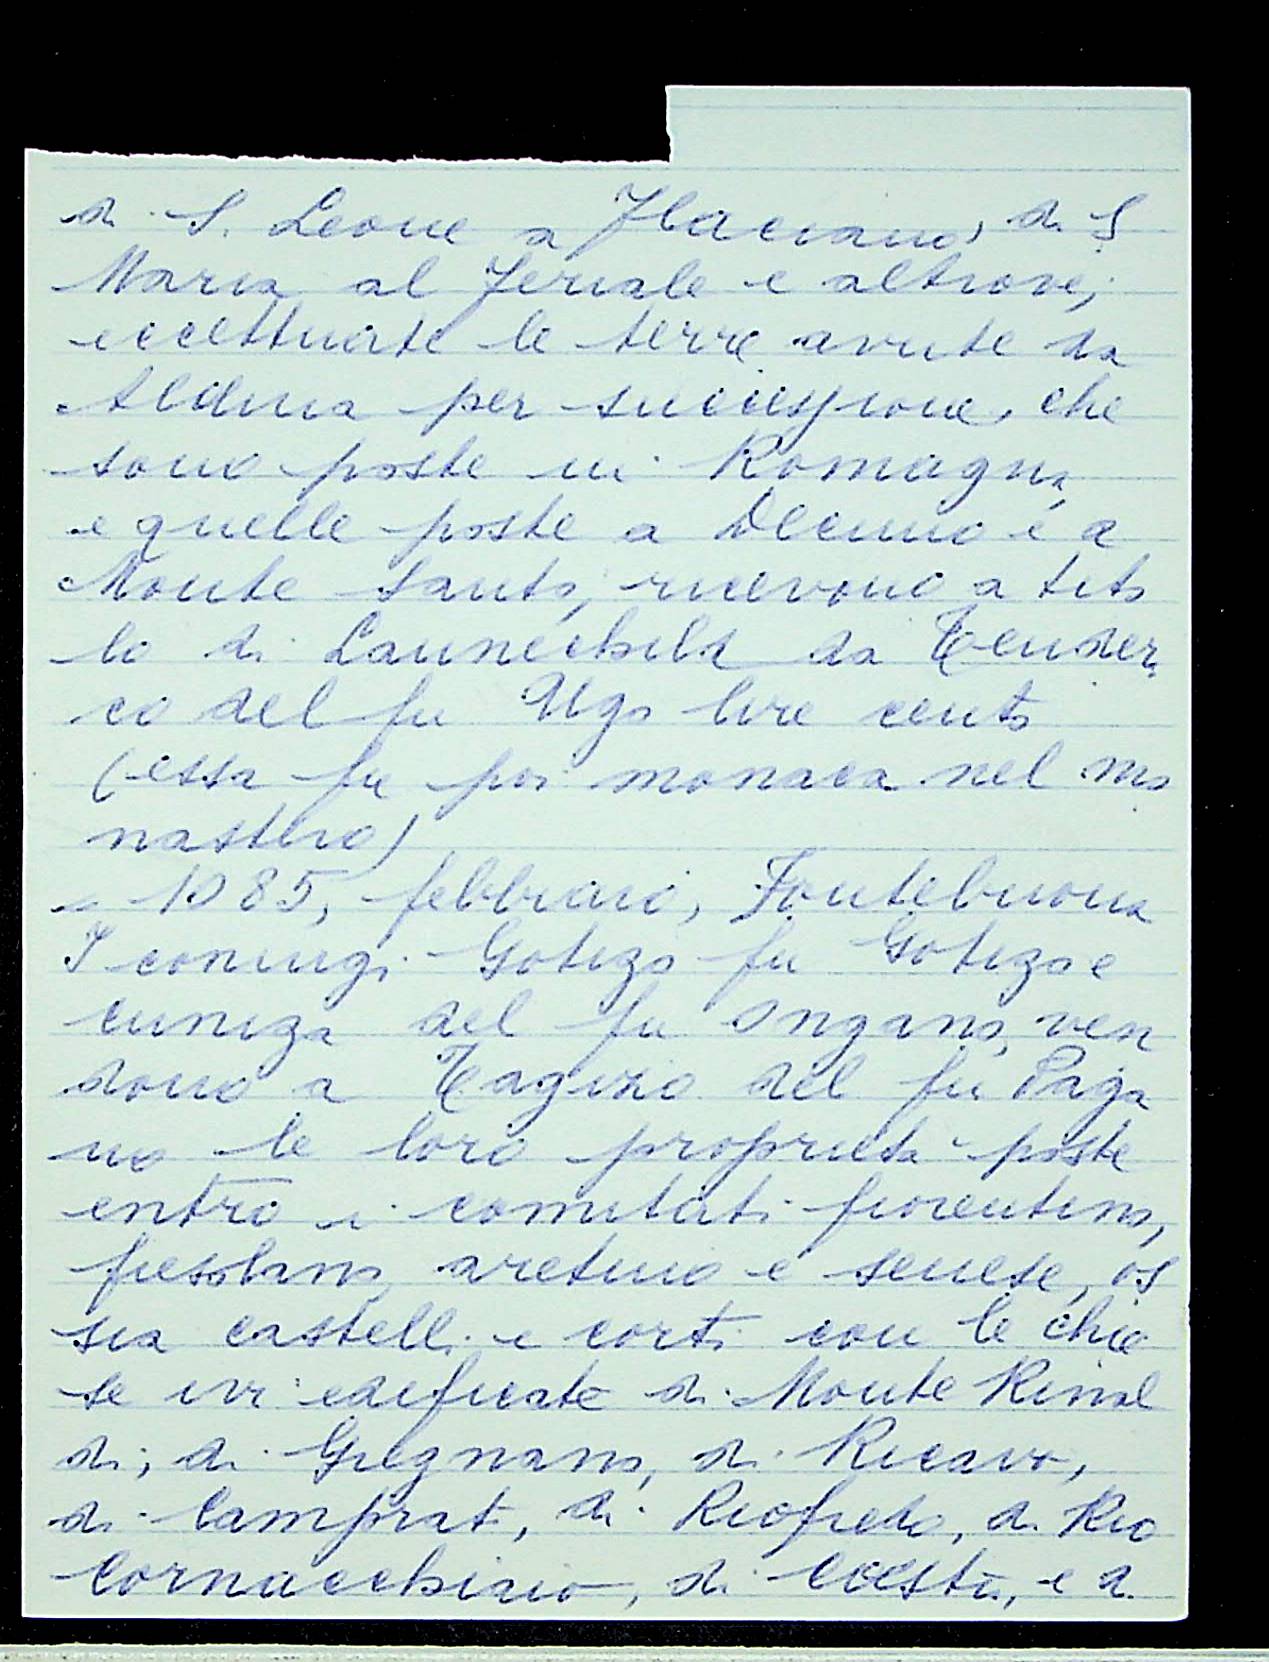 di S. Leone a Flaciano, di S
Maria al Feriale e altrove,
eccettuate le terre avute da
Aldina per successione, che
sono poste in Romagna,
e quelle poste a Decimo e a
Monte Santo, ricevono a tito
lo di Launechild da Teuderi
co del fu Ugo lire cento
(essa fu poi monaca nel mo
nastero)
- 1085, febbraio, Fontebuona
I coniugi Gotizo fu Gotizo e
Cuniza del fu Ongano, ven
dono a Tagizo del fu Paga
no le loro proprietà poste
entro i comitati fiorentino,
fiesolano, aretino e senese, os
sia castelli e corti con le chie
se ivi edificate di Monte Rinal
di, di Grignano, di Ricavo,
di Camprati, di Riofredo, di Rio
Cornacchiaio, di e di